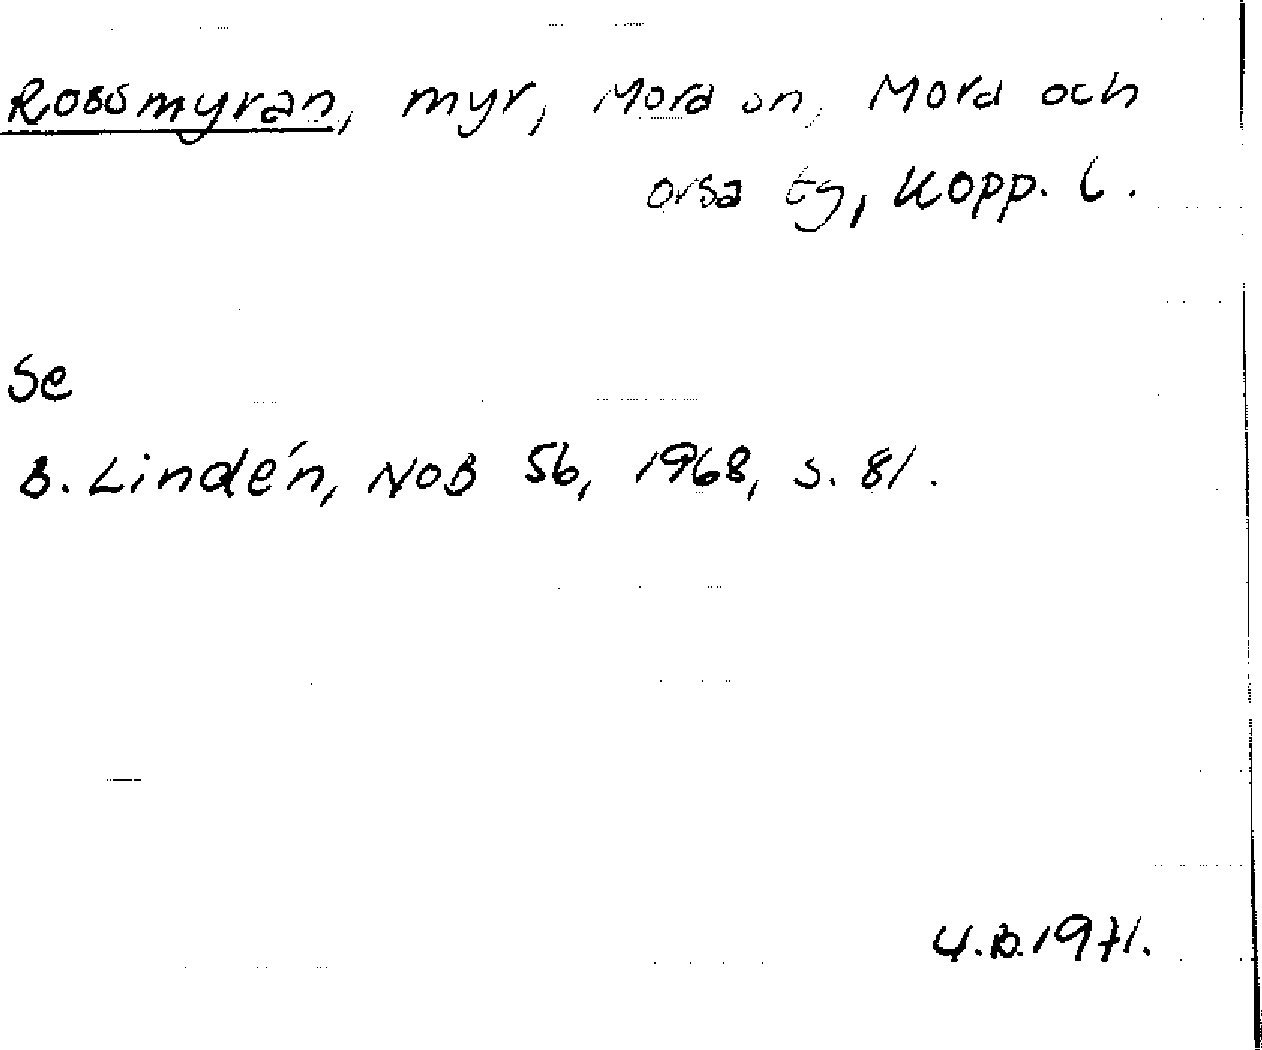 Rossmyran, myr, Mora sn, Mora och
Orsa tg, Kopp. l.
Se
B. Lindén, NoB 56, 1968, s. 81.
U.B. 1971.